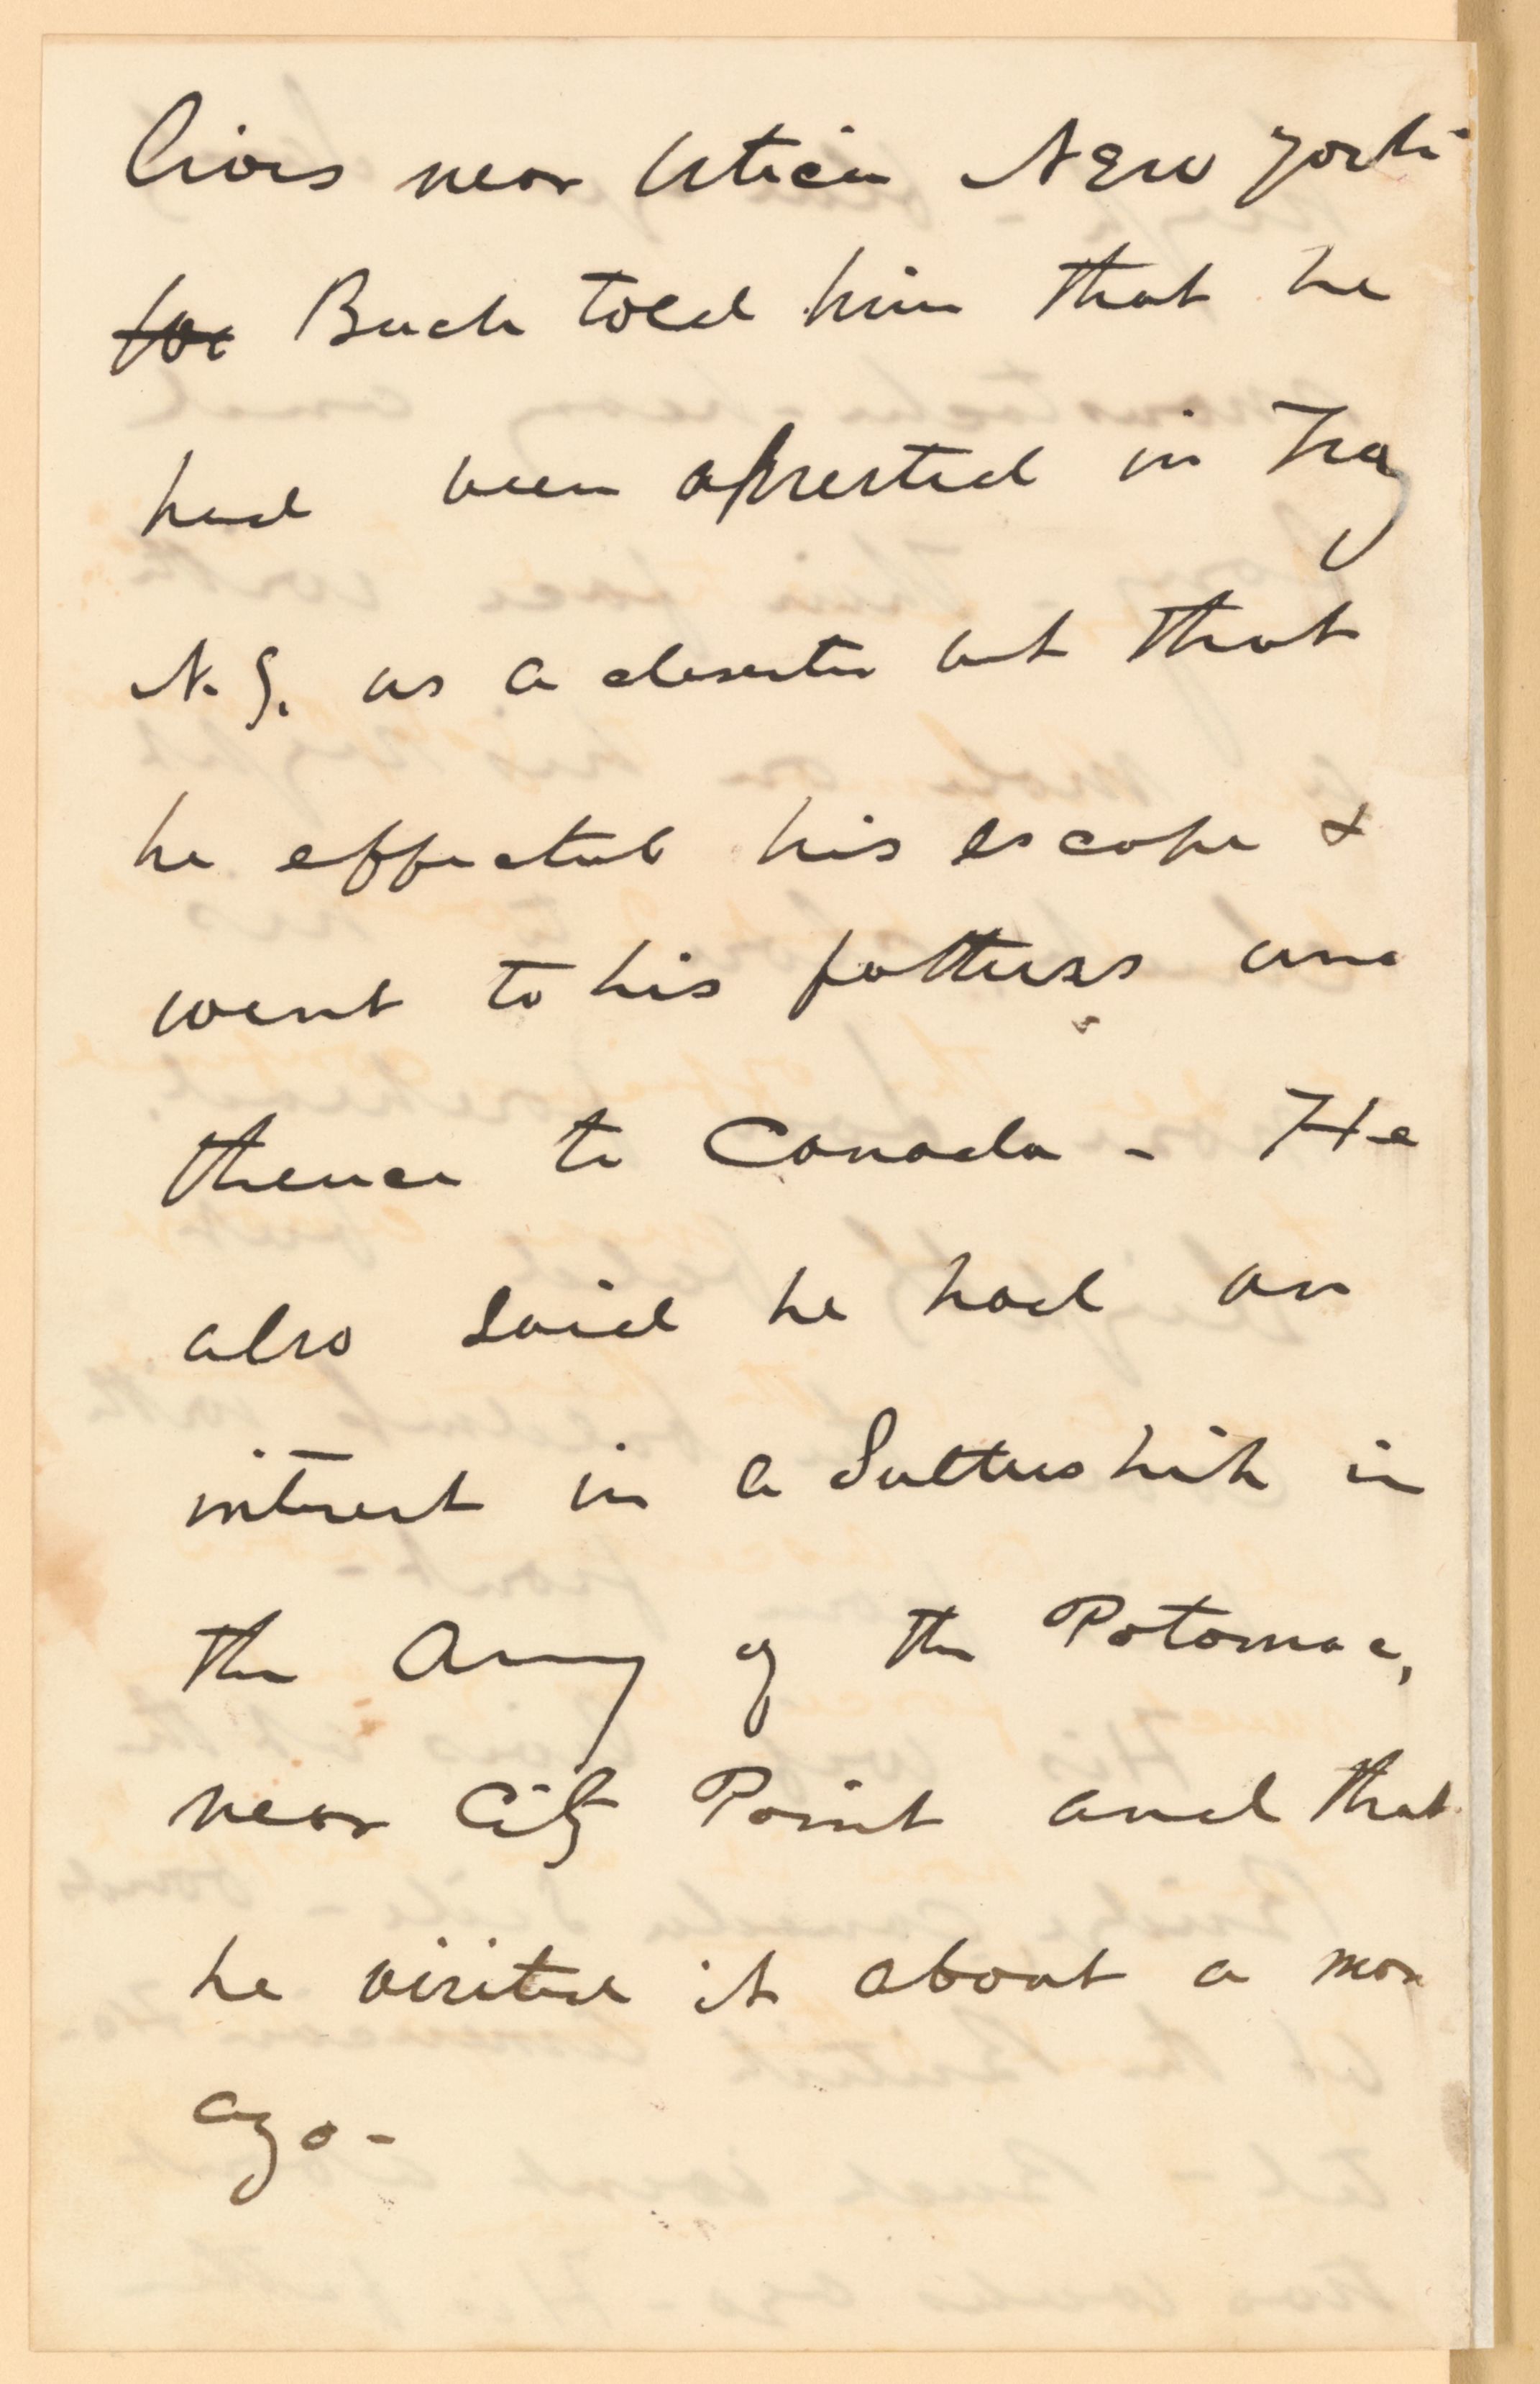 lives near Utica New York
Buck told him that he
had been arrested in Troy
N.Y. as a deserter but that
he effected his escape &
went to his fathers and
thence to Canada - He
also said he had an
interest in a Sutlership in
the Army of the Potomac,
near City Point and that
he visited it about a mon
ago -